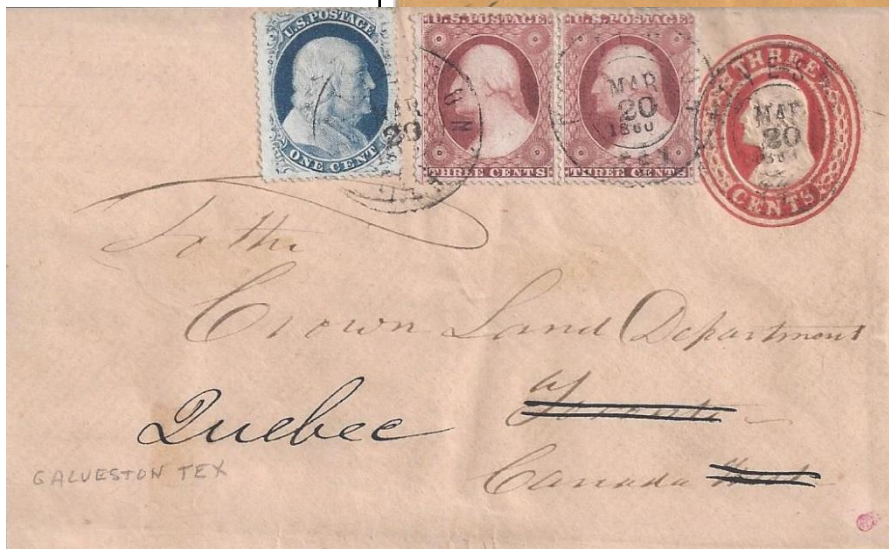 U.S. POSTAGE
ONE CENT
U.S. POSTAGE
THREE CENTS
U.S. POSTAGE
THREE CENTS
THREE
CENTS
MAR
20
MAR
20
1860
TEX
MAR
20
To the
Crown Land Department
Quebec
Toronto
Canada West
GALVESTON TEX